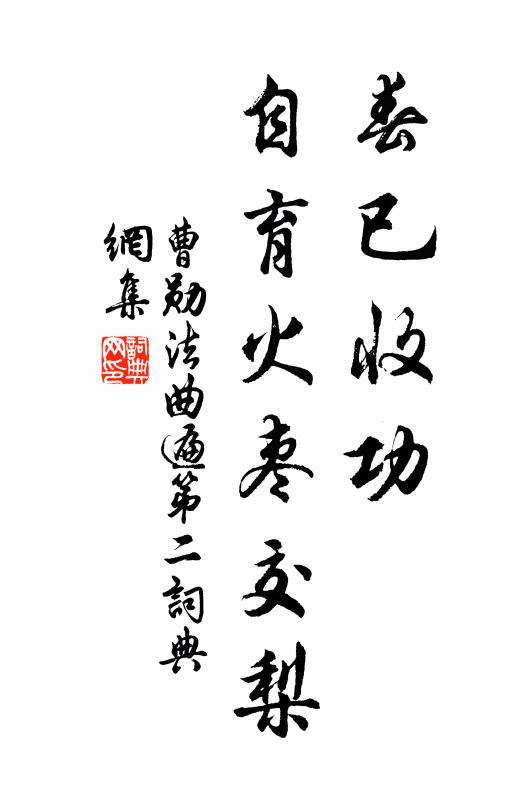 春已收功
自育火枣交梨
曹勋法曲遍第二詞典
網集
詞典网印